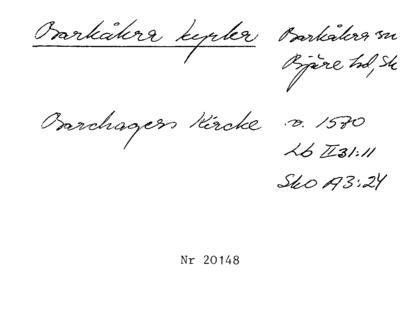 Barkåkra kyrka Barkåkra sn
Bjäre hd, Sk
Barchagers Kircke o. 1570
Lb II 31:11
Sko A3:24
Nr 20148